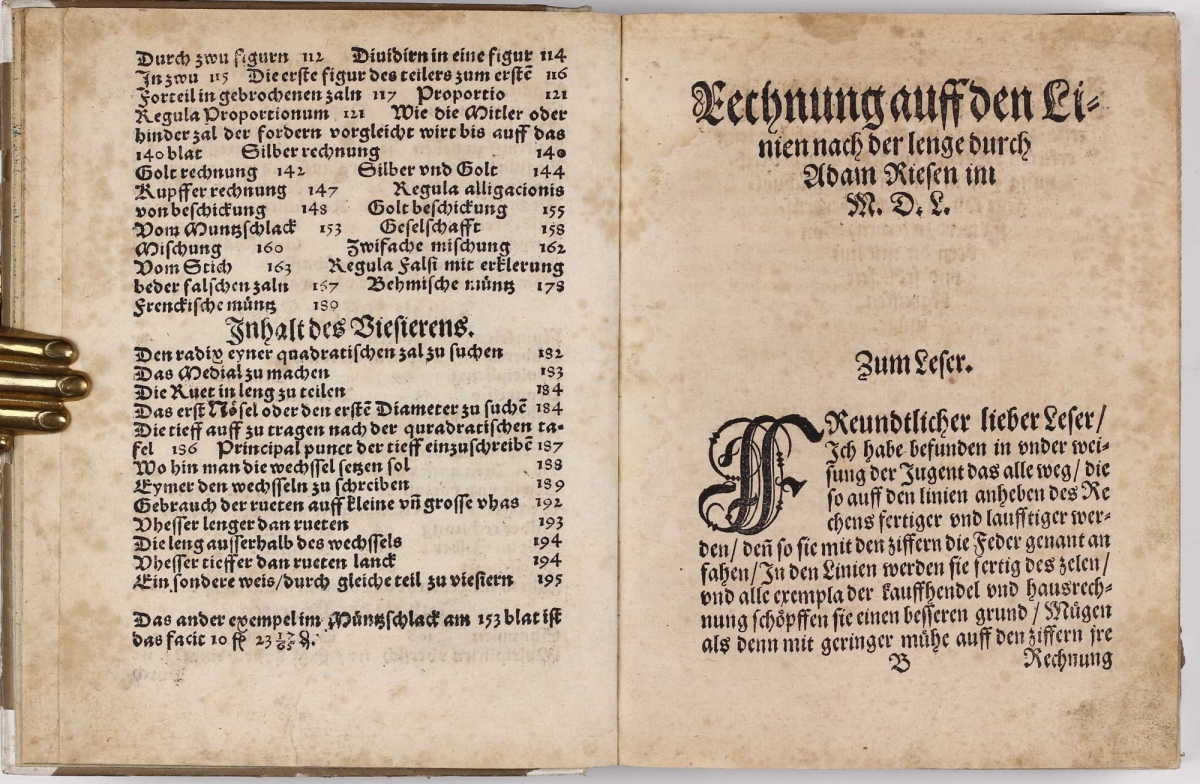 Durch zwu figurn 112 Diuidirn in eine figur 114
In zwu 115 Die erste figur des teilers zum erstē 116
Forteil in gebrochenen zaln 117 Proportio 121
Regula Proportionum 121 Wie die Mitler oder
hinder zal der fordern vorgleicht wirt bis auff das
140 blat Silber rechnung 140
Golt rechnung 142 Silber vnd Golt 144
Kupffer rechnung 147 Regula alligacionis
von beschickung 148 Golt beschickung 155
Vom Muntzschlack 153 Geselschafft 158
Mischung 160 Zwifache mischung 162
Vom Stich 163 Regula Falsi mit erklerung
beder falschen zaln 167 Behmische müntz 178
Frenckische müntz 180
Inhalt des Viesierens.
Den radix eyner quadratischen zal zu suchen 182
Das Medial zu machen 183
Die Ruet in leng zu teilen 184
Das erst Nösel oder den erstē Diameter zu suchē 184
Die tieff auff zu tragen nach der quradratischen ta-
fel 186 Principal punct der tieff einzuschreibē 187
Wo hin man die wechssel setzen sol 188
Eymer den wechsseln zu schreiben 189
Gebrauch der rueten auff kleine vñ grosse vhas 192
Vhesser lenger dan rueten 193
Die leng ausserhalb des wechssels 194
Vhesser tieffer dan rueten lanck 194
Ein sondere weis/durch gleiche teil zu viesiern 195
Das ander exempel im Müntzschlack am 153 blat ist
das facit 10 fl 23
Rechnung auff den Li-
nien nach der lenge durch
Adam Riesen im
M. D. L.
Zum Leser.
FReundtlicher lieber Leser/
Ich habe befunden in vnder wei-
sung der Jugent das alle weg/ die
so auff den linien anheben des Re
chens fertiger vnd laufftiger wer-
den/ deñ so sie mit den ziffern die Feder genant an
fahen/ In den Linien werden sie fertig des zelen/
vnd alle exempla der kauffhendel vnd hausrech-
nung schöpffen sie einen besseren grund/ Mügen
als denn mit geringer mühe auff den ziffern jre
B Rechnung